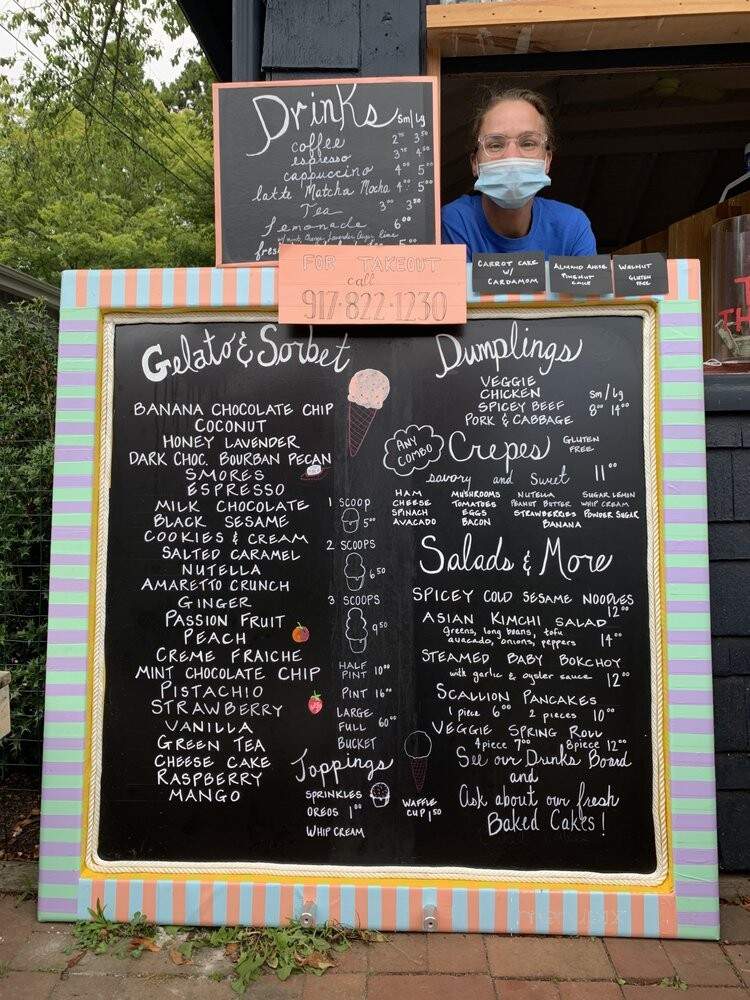 Drinks sm/lg
coffee 2⁷⁵ 3⁵⁰
espresso 3⁷⁵ 4⁵⁰
cappuccino 4⁰⁰ 5⁰⁰
latte Matcha Mocha 4⁰⁰ 5⁰⁰
Tea 3⁰⁰ 3⁵⁰
Lemonade 6⁰⁰
w/ mint, Orange, Lavender, Ginger, Lime
FOR TAKEOUT
call
917-822-1230
CARROT CAKE
W/
CARDAMOM
ALMOND ANISE
PINENUT
CAKE
WALNUT
GLUTEN
FREE
Gelato & Sorbet
BANANA CHOCOLATE CHIP
COCONUT
HONEY LAVENDER
DARK CHOC. BOURBAN PECAN
SMORES
ESPRESSO
MILK CHOCOLATE
BLACK SESAME
COOKIES & CREAM
SALTED CARAMEL
NUTELLA
AMARETTO CRUNCH
GINGER
PASSION FRUIT
PEACH
CREME FRAICHE
MINT CHOCOLATE CHIP
PISTACHIO
STRAWBERRY
VANILLA
GREEN TEA
CHEESE CAKE
RASPBERRY
MANGO
1 SCOOP
5⁰⁰
2 SCOOPS
6⁵⁰
3 SCOOPS
9⁵⁰
HALF
PINT 10⁰⁰
PINT 16⁰⁰
LARGE
FULL 60⁰⁰
BUCKET
Toppings
SPRINKLES
OREOS 1⁰⁰
WHIP CREAM
WAFFLE
CUP 1⁵⁰
Dumplings
VEGGIE
CHICKEN
SPICEY BEEF
PORK & CABBAGE
sm/lg
8⁰⁰ 14⁰⁰
ANY
COMBO
Crepes GLUTEN
FREE
savory and Sweet 11⁰⁰
HAM
CHEESE
SPINACH
AVACADO
MUSHROOMS
TOMATOES
EGGS
BACON
NUTELLA
PEANUT BUTTER
STRAWBERRIES
BANANA
SUGAR LEMON
WHIP CREAM
POWDER SUGAR
Salads & More
SPICEY COLD SESAME NOODLES
12⁰⁰
ASIAN KIMCHI SALAD
greens, long beans, tofu
avacado, onions, peppers 14⁰⁰
STEAMED BABY BOKCHOY
with garlic & oyster sauce 12⁰⁰
SCALLION PANCAKES
1 piece 6⁰⁰ 2 pieces 10⁰⁰
VEGGIE SPRING ROLL
4piece 7⁰⁰ 8piece 12⁰⁰
See our Drinks Board
and
Ask about our fresh
Baked Cakes!